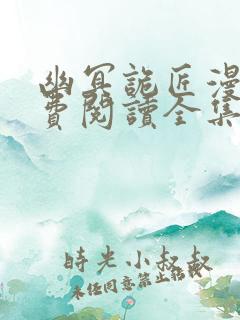 幽冥詭匠漫
費閱讀全集
時光小叔叔
未經同意禁止轉載